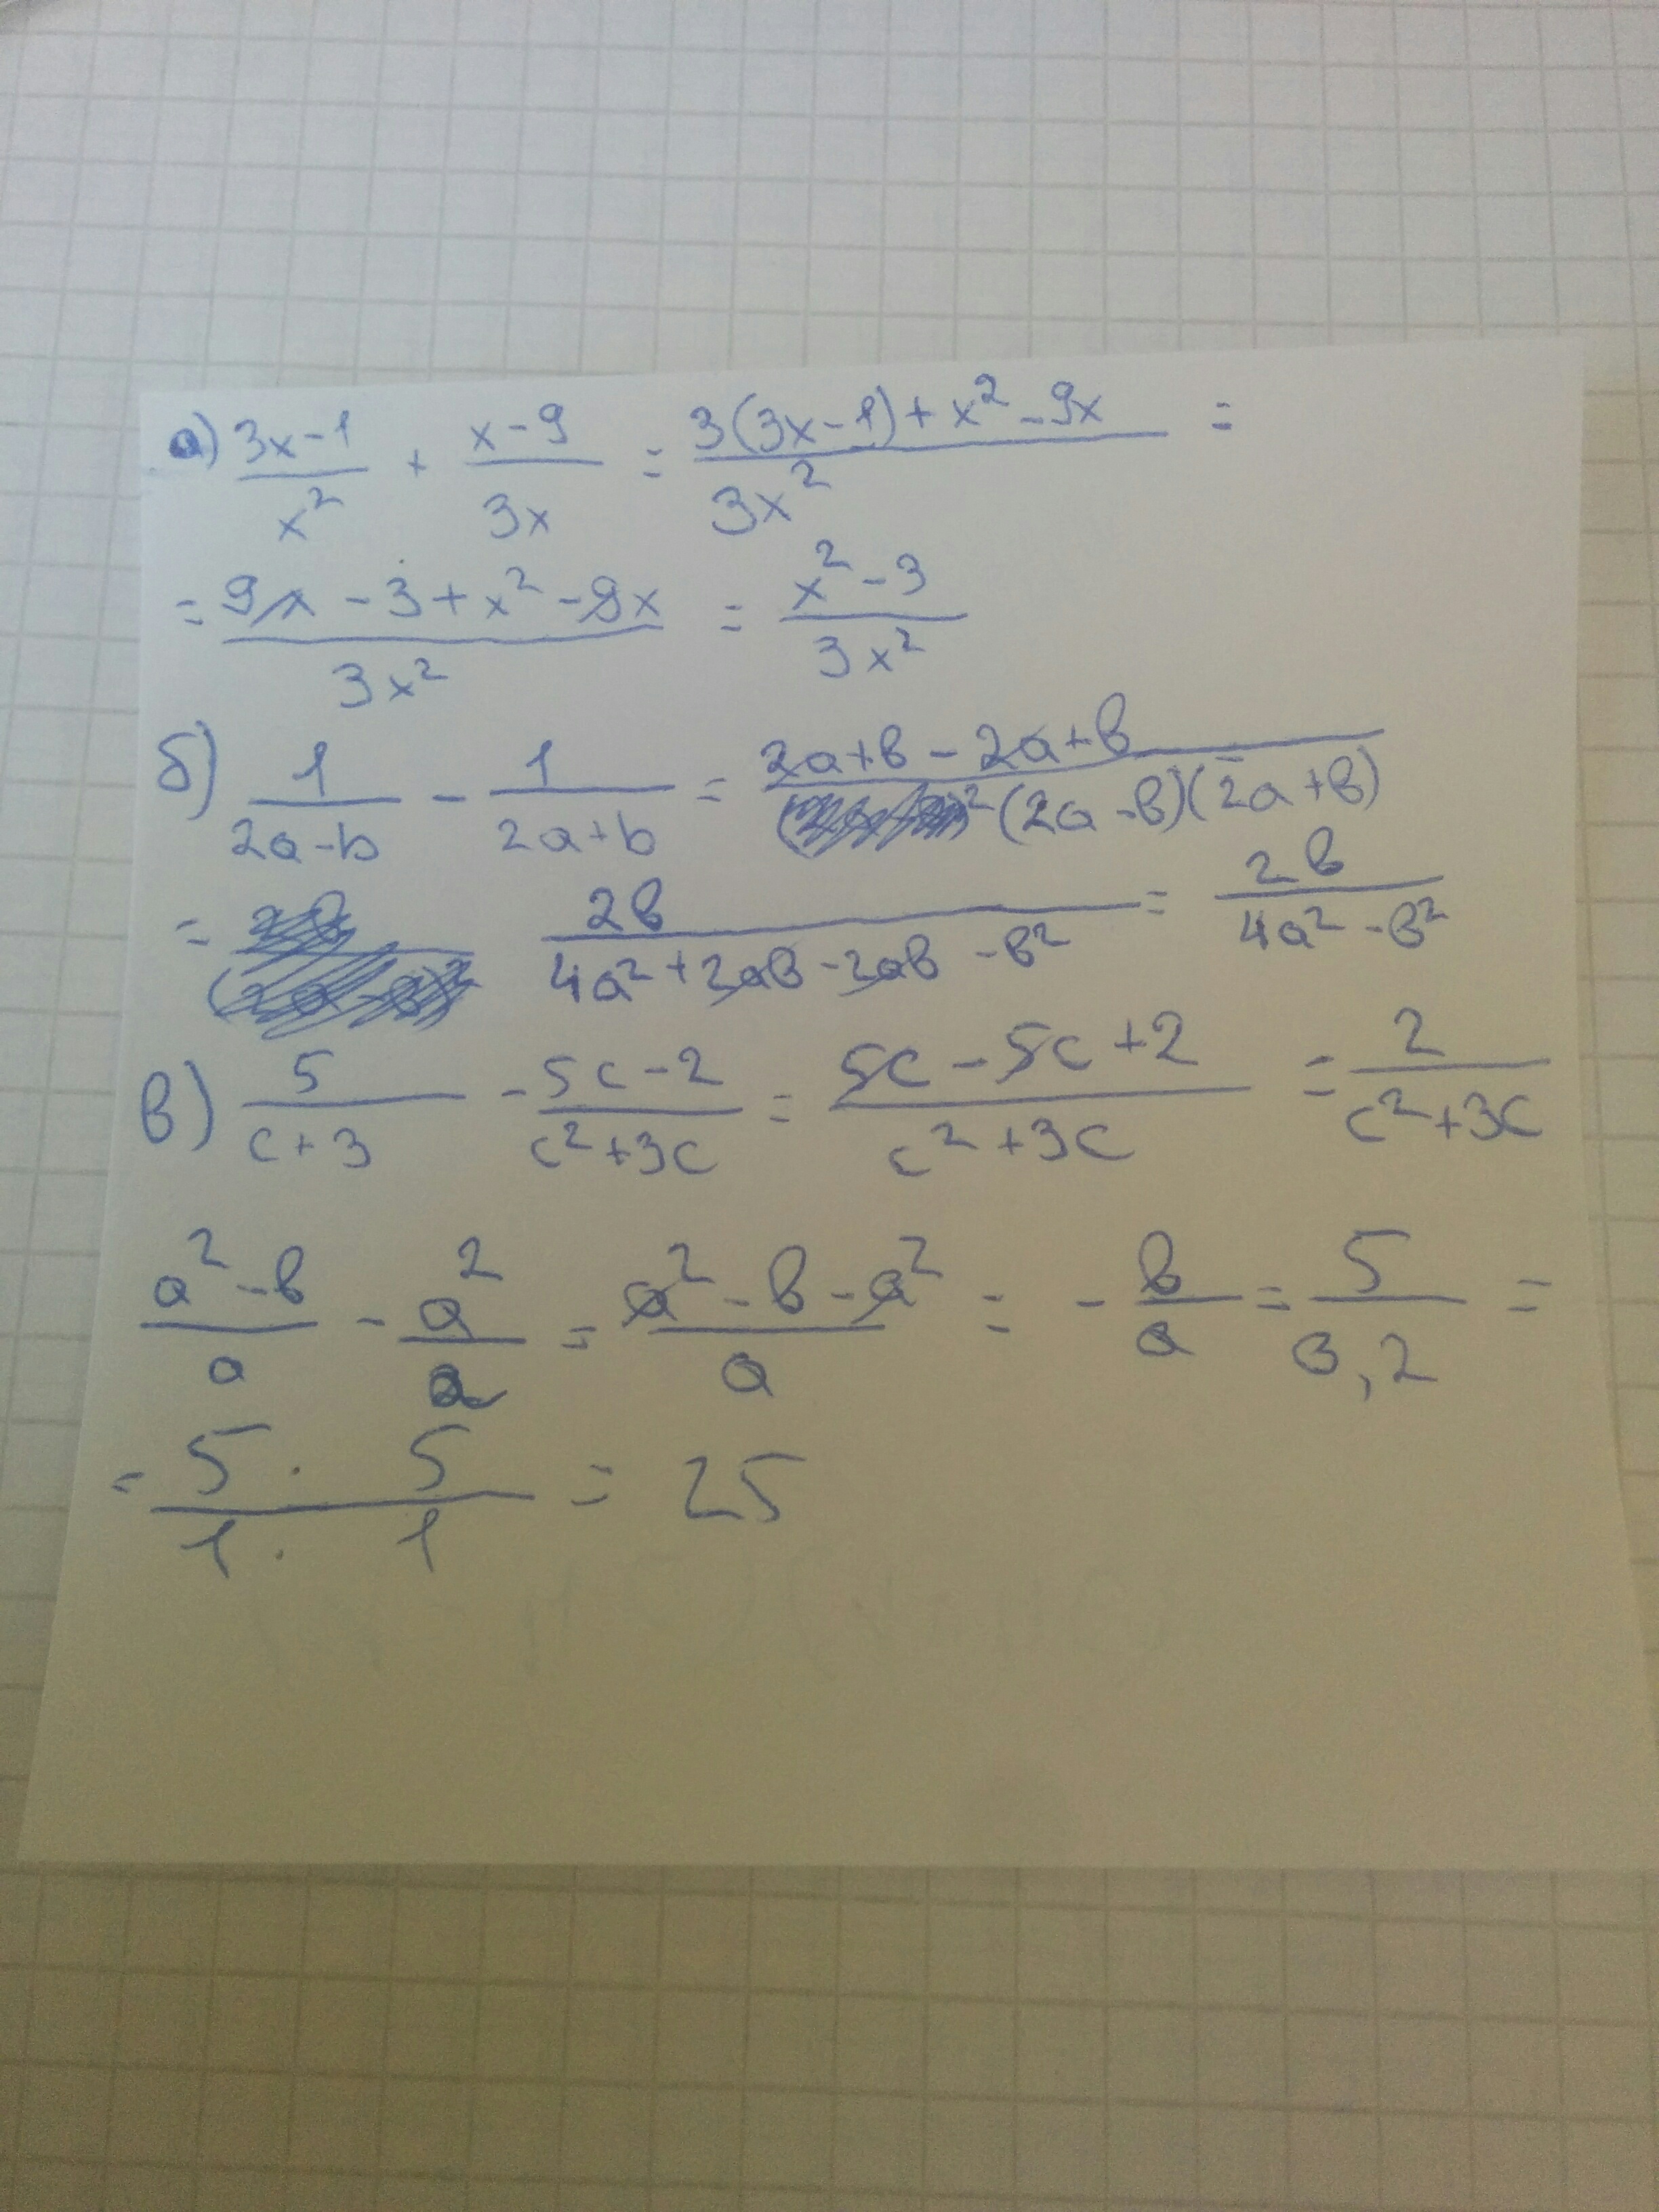 а) (3x-1)/x² + (x-9)/3x = (3(3x-1)+x²-9x)/3x² =
= (9x-3+x²-9x)/3x² = (x²-3)/3x²
б) 1/(2a-b) - 1/(2a+b) = (2a+b-2a+b)/((2a-b)(2a+b))
= 2b/(4a²+2ab-2ab-b²) = 2b/(4a²-b²)
в) 5/(c+3) - (5c-2)/(c²+3c) = (5c-5c+2)/(c²+3c) = 2/(c²+3c)
(a²-b)/a - a²/a = (a²-b-a²)/a = -b/a = 5/0,2 =
= (5·5)/(1·1) = 25